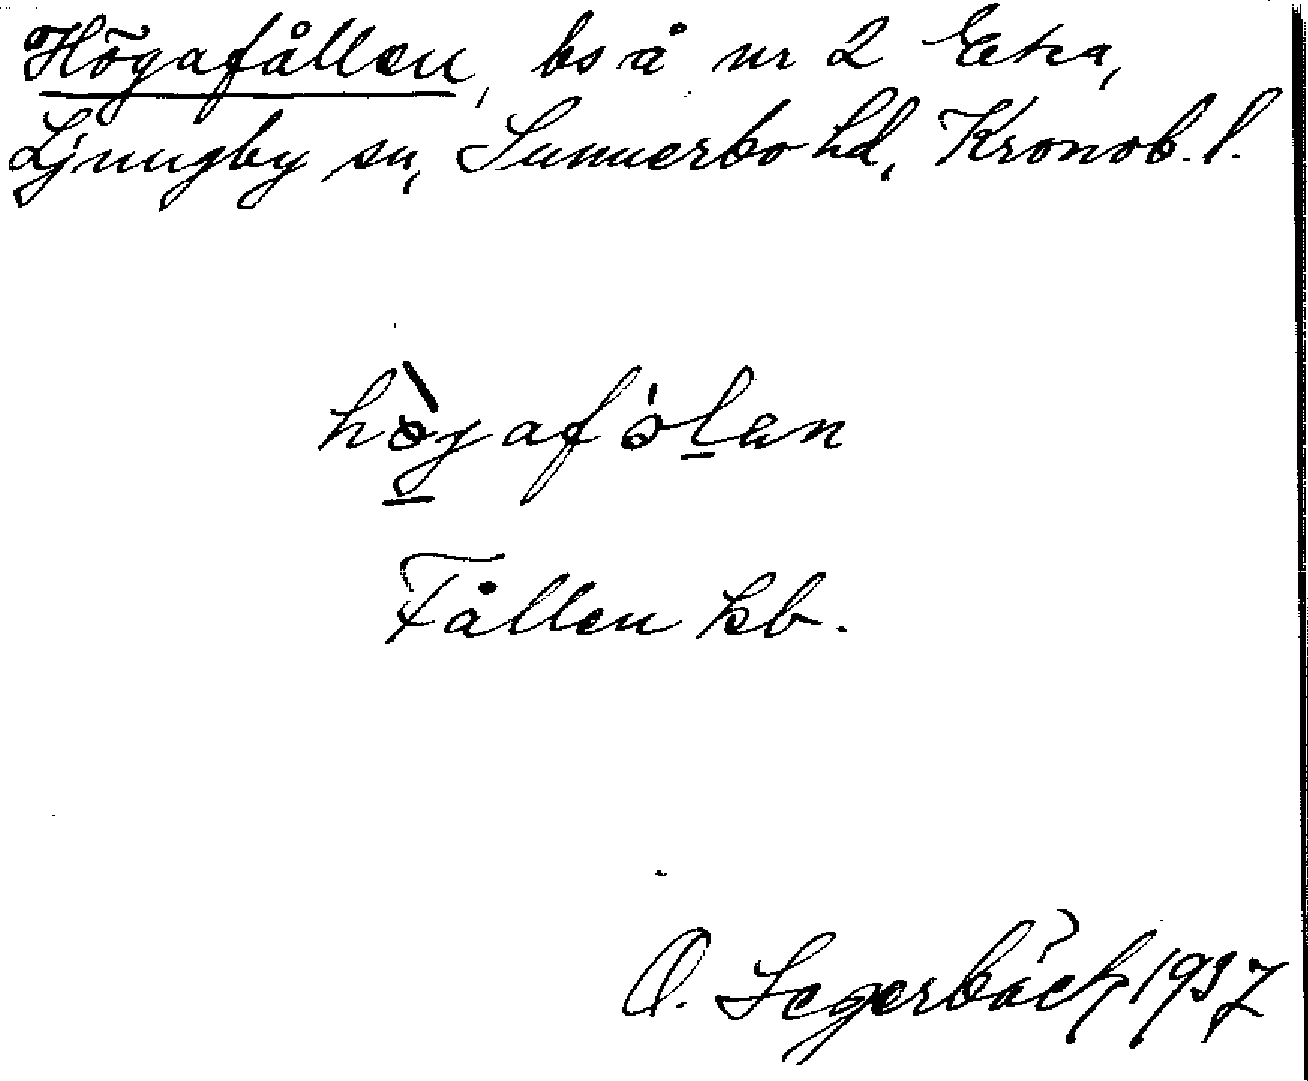 Högafållen, bs å nr 2 Eka,
Ljungby sn, Sunnerbo hd, Kronob. l.
hògafólan
Fållen kb.
O. Segerbäck 1937